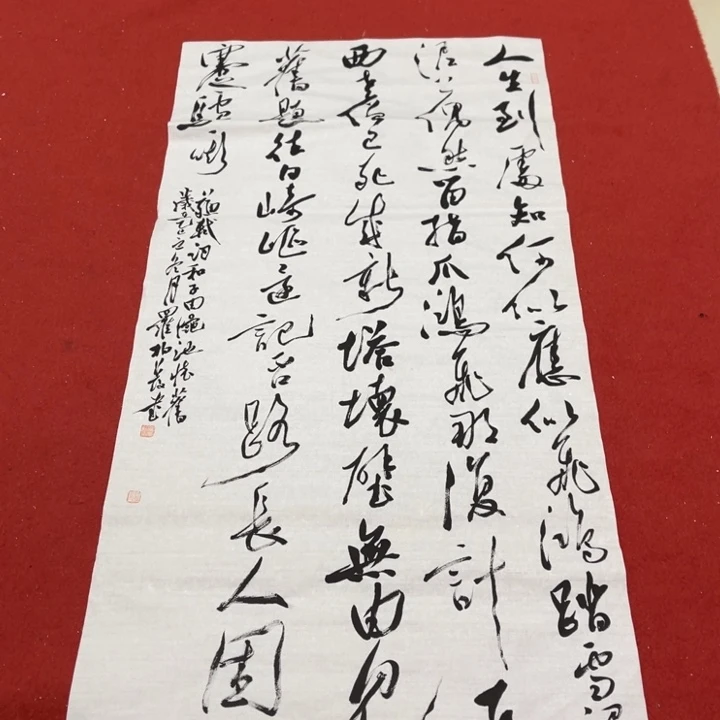 人生到處知何似應似飛鴻踏雪泥
泥上偶然留指爪鴻飛那復計東
西老僧已死成新塔壞壁無由見
舊題往日崎嶇還記否路長人困
蹇驢嘶
蘇軾詞和子由澠池懷舊
冬月羅